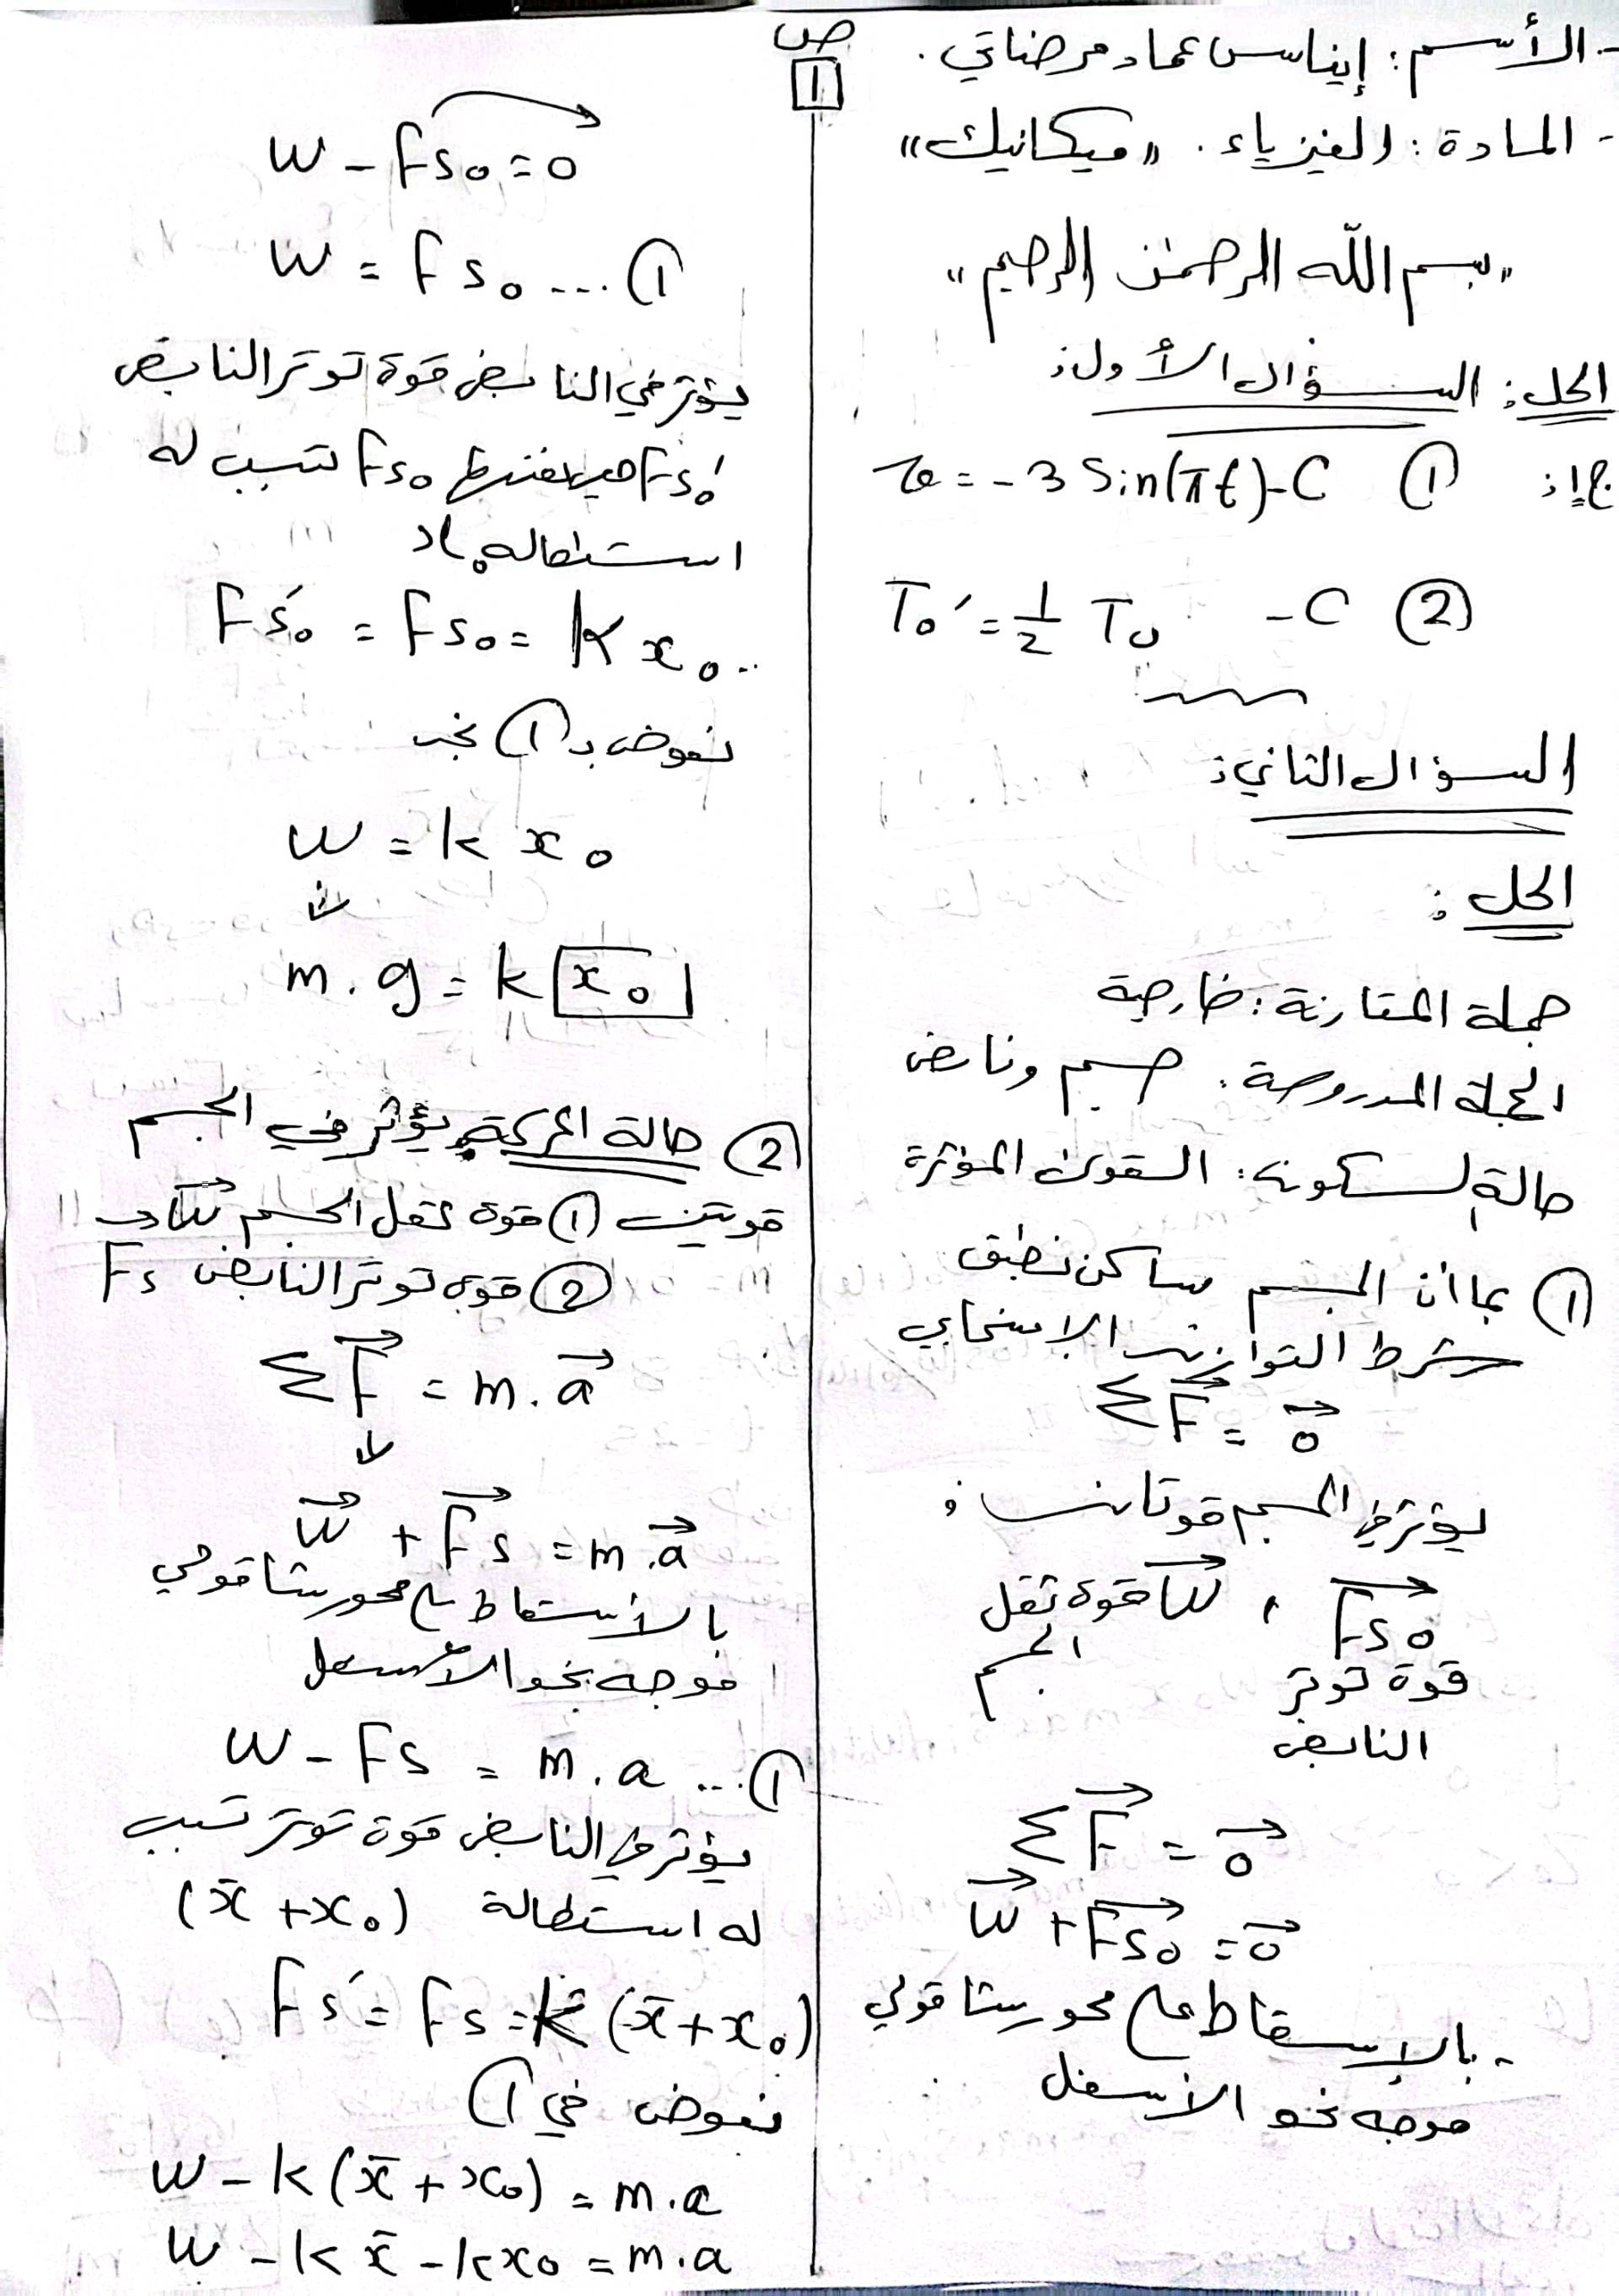 - الأسم: إيناس عماد مرضاتي.
- المادة: الفيزياء. "ميكانيك"
"بسم الله الرحمن الرحيم"
الحل: السؤال الأول:
ج1: ① = -3 Sin(πt) -C
T₀' = 1/2 T₀ -C ②
السؤال الثاني:
الحل:
جملة المقارنة: خارجية
الجملة المدروسة: جسم ونابض
حالة السكون: القوى المؤثرة
① بما أن الجسم ساكن نطبق
شرط التوازن الانسحابي
ΣF⃗ = 0⃗
يؤثر في الجسم قوتان:
F⃗s₀ ، W⃗ قوة ثقل
الجسم
قوة توتر
النابض
ΣF⃗ = 0⃗
W⃗ + F⃗s₀ = 0⃗
- بالإسقاط على محور شاقولي
موجه نحو الأسفل
ص
1
W - Fs₀ = 0
W = Fs₀ ... ①
يؤثر في النابض قوة توتر النابض
Fs₀' هي نفسها Fs₀ تسبب له
استطالة x₀
Fs₀' = Fs₀ = k x₀ ..
نعوض بـ ① نجد
W = k x₀
m . g = k x₀
② حالة الحركة يؤثر في الجسم
قوتين ① قوة ثقل الجسم W⃗
② قوة توتر النابض Fs
ΣF⃗ = m . a⃗
W⃗ + F⃗s = m . a⃗
بالأسقاط على محور شاقولي
موجه نحو الأسفل
W - Fs = m . a ... ①
يؤثر في النابض قوة توتر تسبب
له استطالة (x̄ + x₀)
Fs' = Fs = k (x̄ + x₀)
نعوض في ①
W - k (x̄ + x₀) = m . a
W - k x̄ - k x₀ = m . a